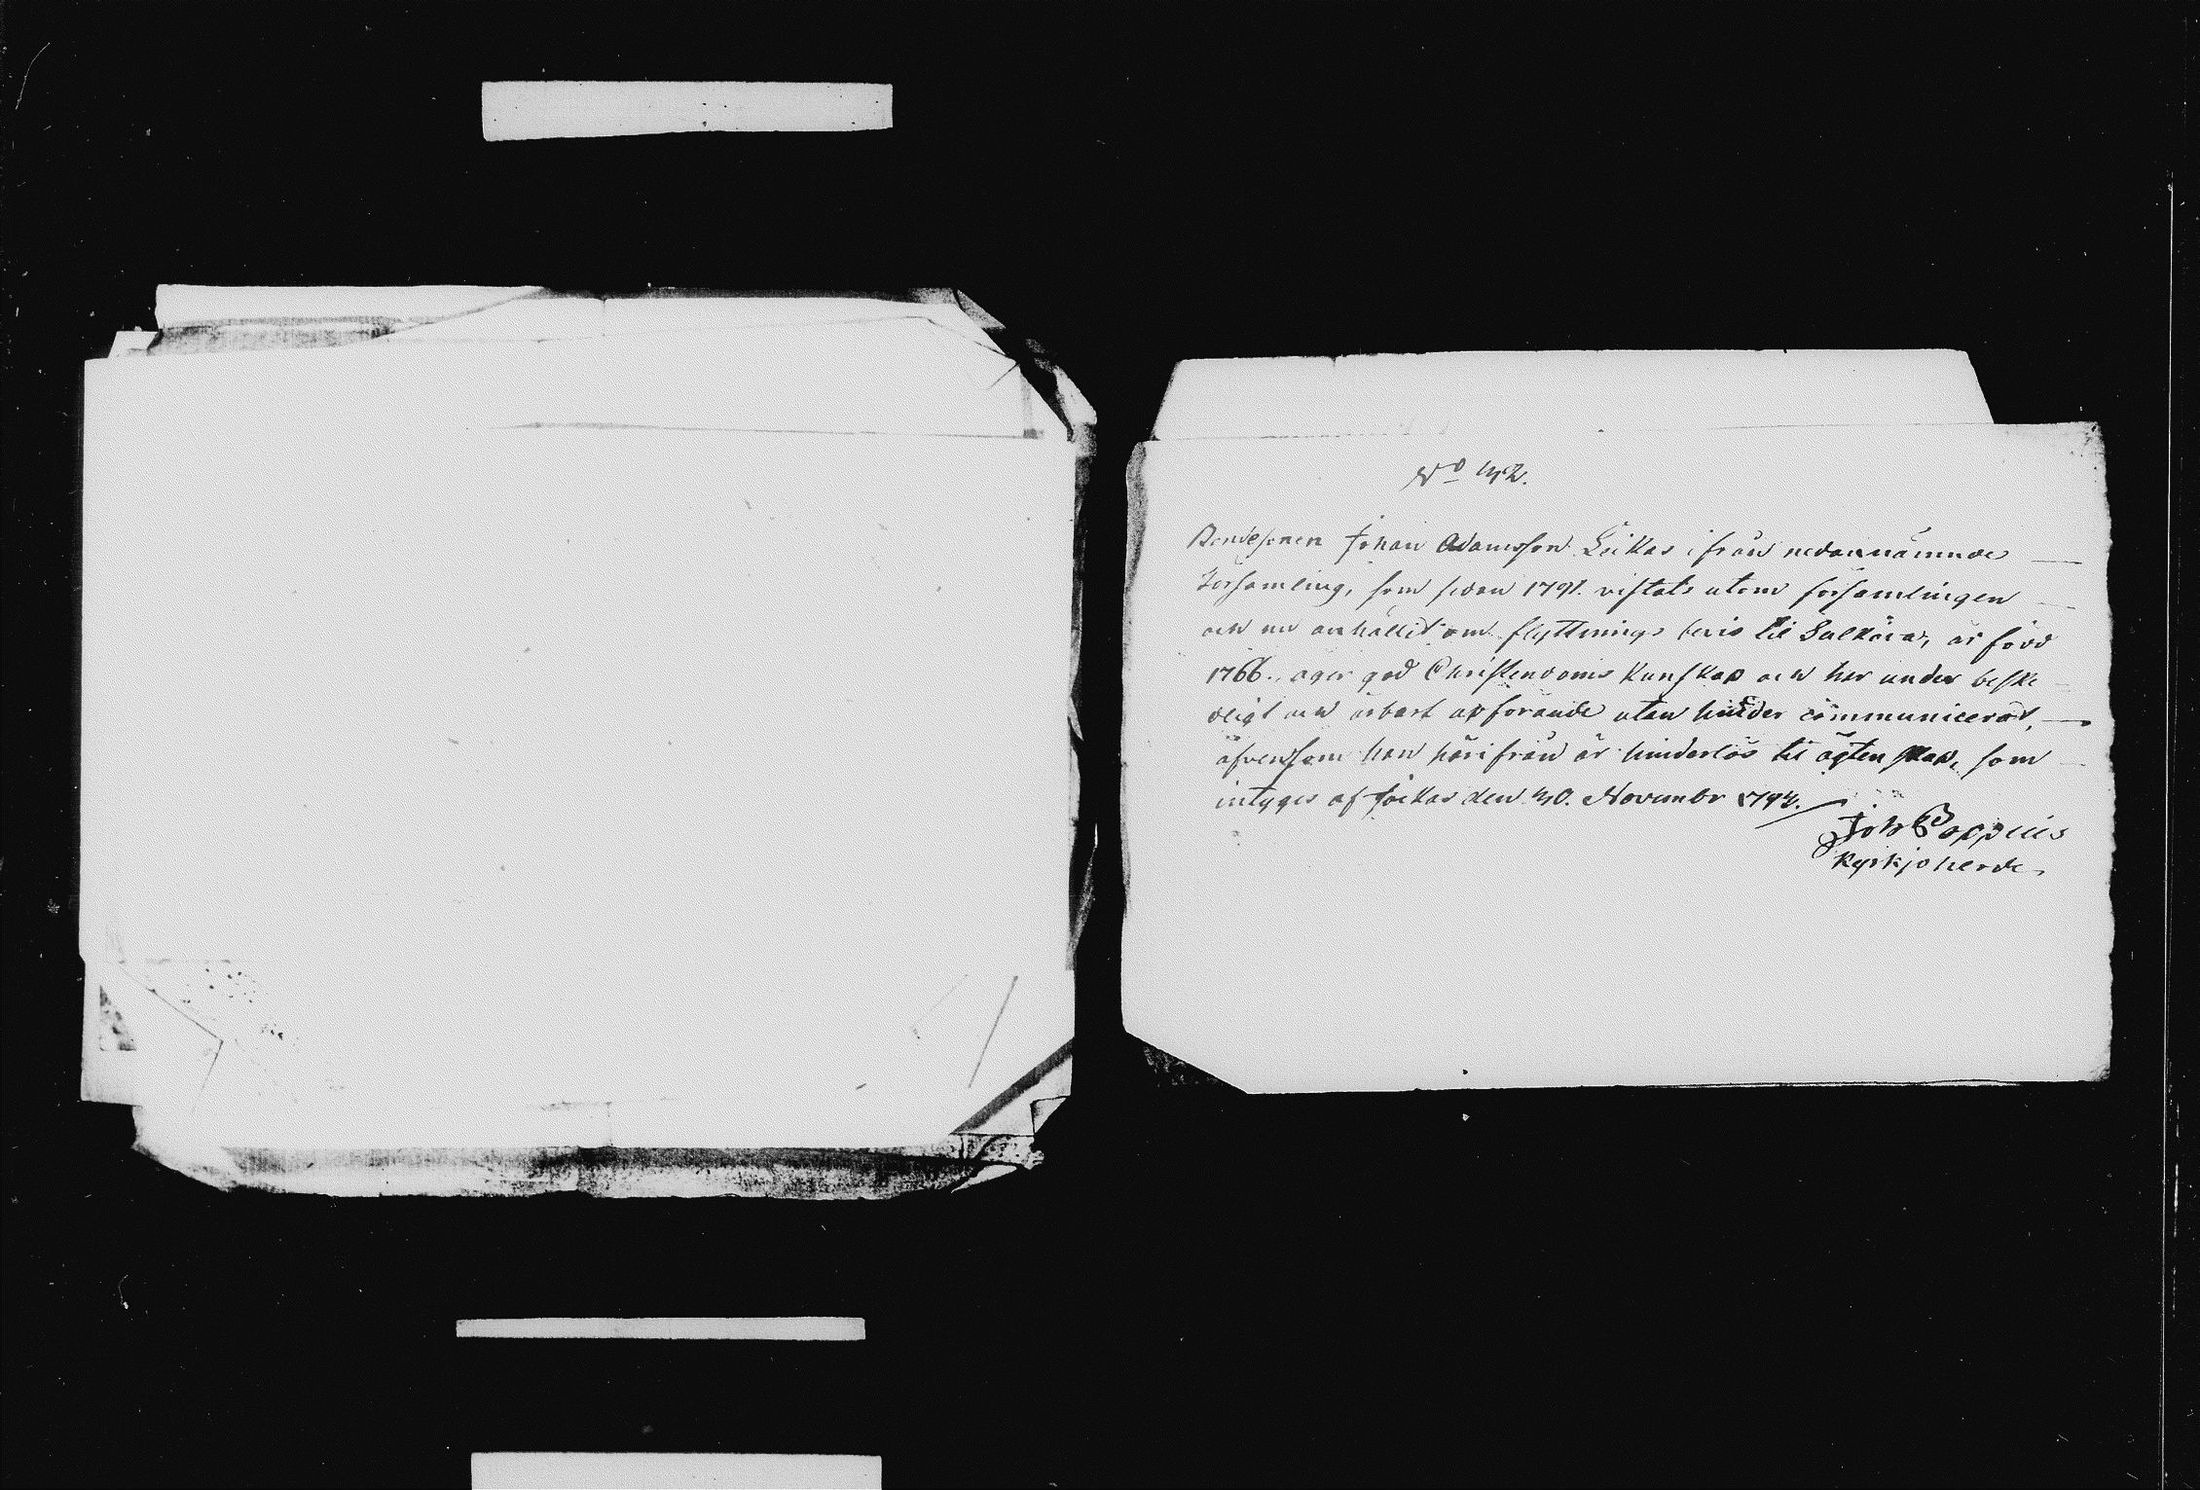 No 32.
Bondesonen Johan Adamsson Leikas ifrån nedannämnde
Församling, som sedan 1791. vistats utom församlingen
och nu anhållit om flyttnings bevis til Sulkava, är född
1766., äger god Christendoms Kunskap och har under beske
deligt och ärbart upförande utan hinder communicerat,
äfvensom han härifrån är hinderlös til ägtenskap, som
intyges af Jockas den 30. Novembr 1794.
Joh Poppius
Kyrkjoherde